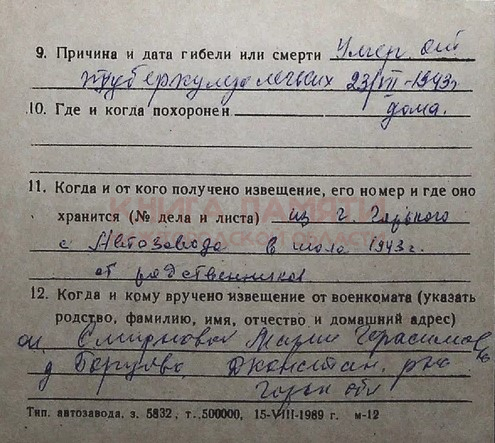 9. Причина и дата гибели или смерти Умер от
туберкулёза легких 23/VII-1943г
дома.
10. Где и когда похоронен
11. Когда и от кого получено извещение, его номер и где оно
хранится (№ дела и листа) из г. Горького
с Автозавода в июле 1943г.
от родственников
12. Когда и кому вручено извещение от военкомата (указать
родство, фамилию, имя, отчество и домашний адрес)
Смирновой Марии Герасимов
д
Горьк обл
Тип. автозавода, з. 5832, т. 500000, 15-VIII-1989 г. м-12
КНИГА ПАМЯТИ